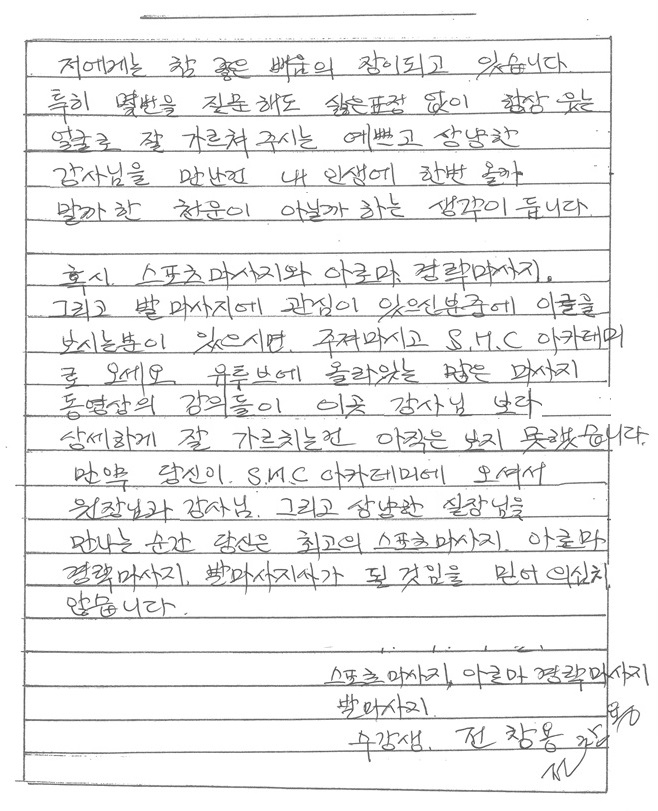 저에게는 참 좋은 배움의 장이되고 있습니다.
특히 몇번을 질문해도 싫은표정 없이 항상 웃는
얼굴로 잘 가르쳐 주시는 예쁘고 상냥한
강사님을 만난건 내 인생에 한번 올까
말까 한 천운이 아닐까 하는 생각이 듭니다.
혹시. 스포츠마사지와 아로마, 경락마사지.
그리고 발 마사지에 관심이 있으신분중에 이글을
보시는분이 있으시면. 주저마시고 S.M.C 아카데미
로 오세요. 유투브에 올라있는 많은 마사지
동영상의 강의들이 이곳 강사님 보다
상세하게 잘 가르치는건 아직은 보지 못했습니다.
만약 당신이. S.M.C 아카데미에 오셔서
원장님과 강사님. 그리고 상냥한 실장님을
만나는 순간 당신은 최고의 스포츠마사지. 아로마
경락마사지. 발마사지사가 될 것임을 믿어 의심치
않습니다.
스포츠마사지, 아로마 경락마사지
발마사지.
수강생. 전 창용